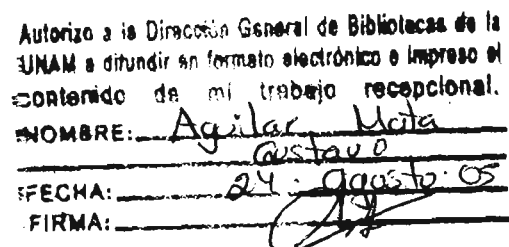 Autorizo a la Dirección General de Bibliotecas de la
UNAM a difundir en formato electrónico e impreso el
contenido de mi trabajo recepcional.
NOMBRE: Aguilar Mata
Gustavo
FECHA: 24 · agosto · 05
FIRMA: